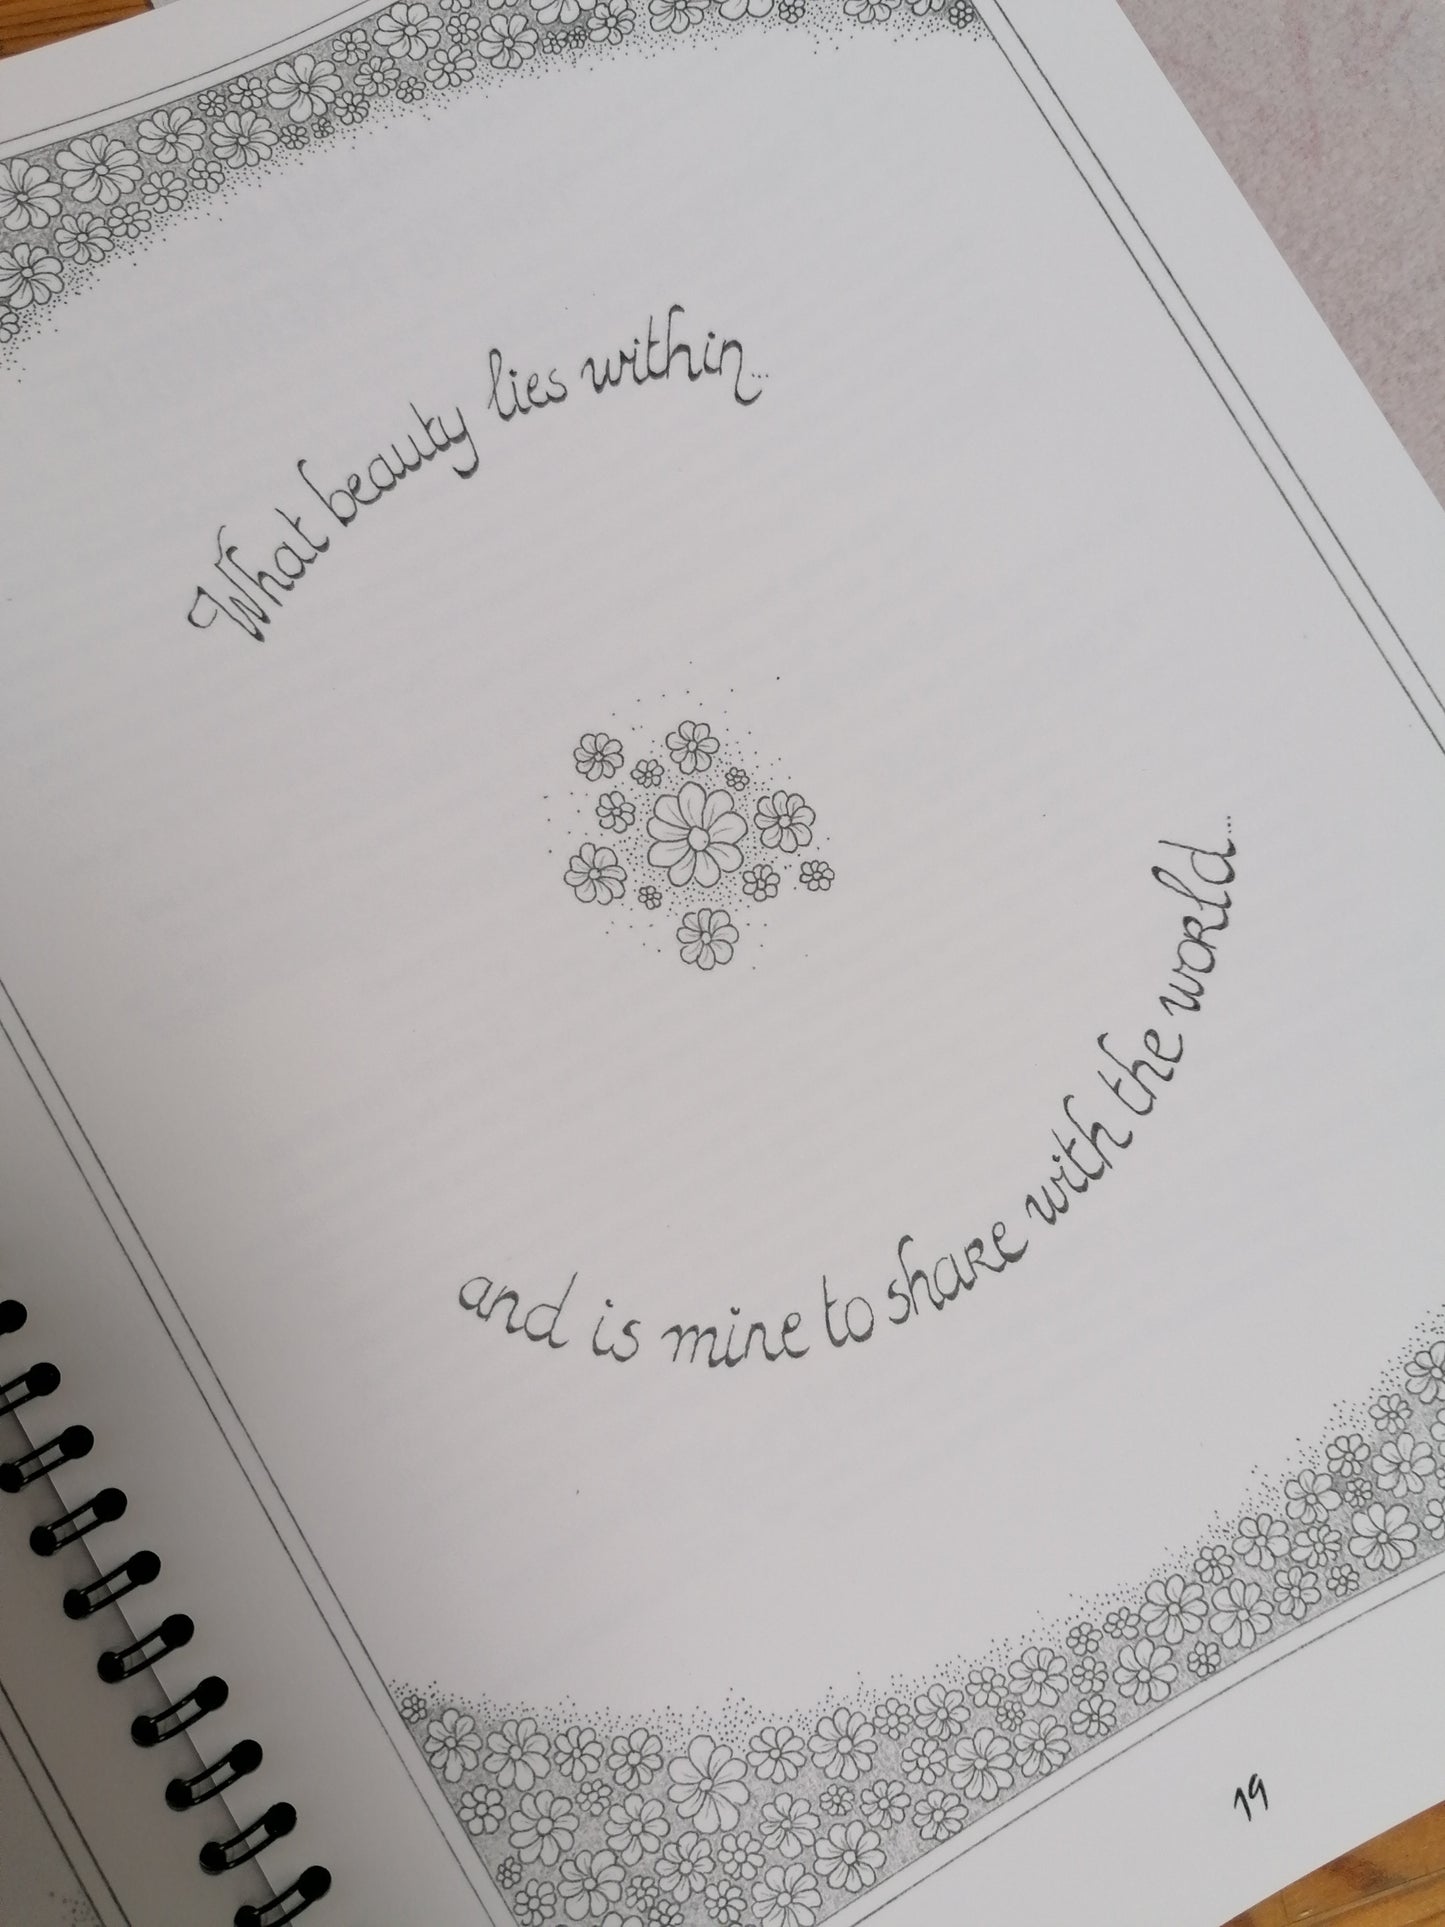 What beauty lies within...
and is mine to share with the world...
19